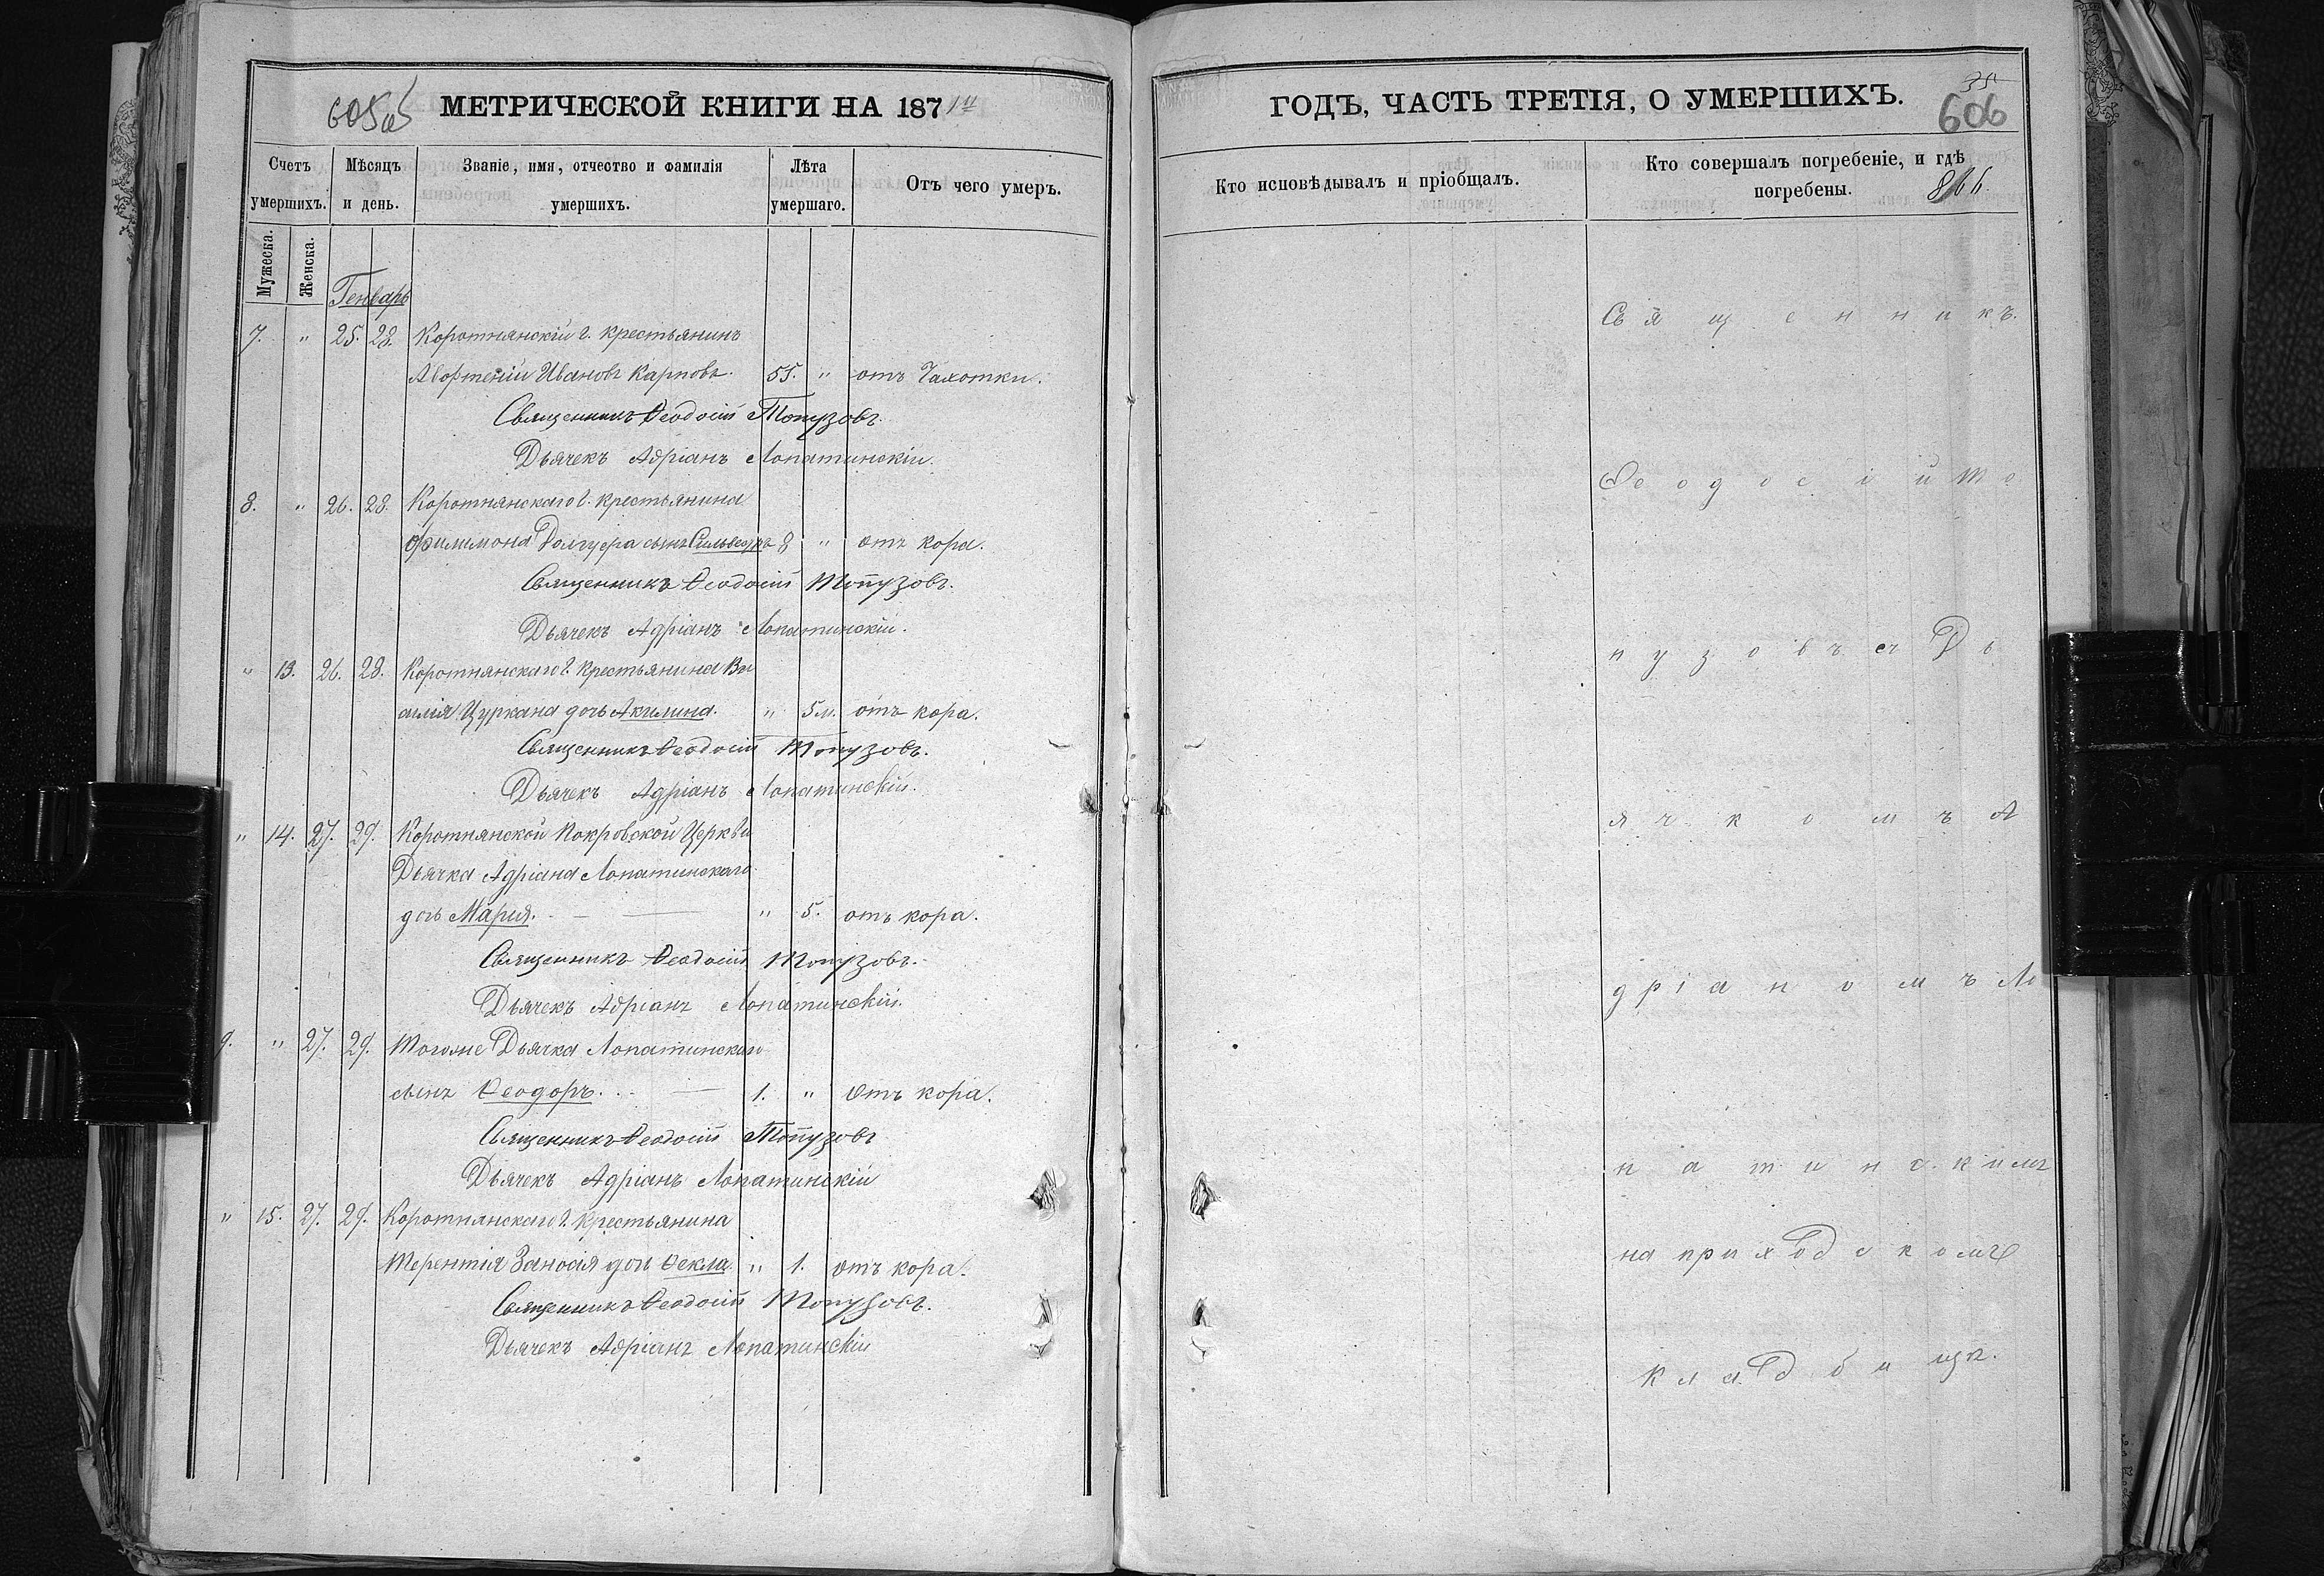 605об
МЕТРИЧЕСКОЙ КНИГИ НА 1871й
Счетъ умершихъ.
Мѣсяцъ и день.
Званіе, имя, отчество и фамилія умершихъ.
Лѣта умершаго.
Отъ чего умеръ.
Мужеска.
Женска.
Генварь
7. " 25. 28. Коротнянскій г. крестьянинъ
Ивановъ Карповъ. 55. " отъ Чахотки.
Священникъ Ѳеодосій Топузовъ.
Дьячекъ Адріанъ Лопатинскій.
8. " 26. 28. Коротнянскаго г. крестьянина
Филимона сынъ 8 " отъ кора.
Священникъ Ѳеодосій Топузовъ.
Дьячекъ Адріанъ Лопатинскій.
" 13. 26. 28. Коротнянскаго г. крестьянина Ва
силія Цуркана дочь Акилина. " 5м. отъ кора.
Священникъ Ѳеодосій Топузовъ.
Дьячекъ Адріанъ Лопатинскій.
" 14. 27. 29. Коротнянской Покровской Церкви
Дьячка Адріана Лопатинскаго
дочь Марія. " 5. отъ кора.
Священникъ Ѳеодосій Топузовъ.
Дьячекъ Адріанъ Лопатинскій.
9. " 27. 29. Тогоже Дьячка Лопатинскаго
сынъ Ѳеодоръ. 1. " отъ кора.
Священникъ Ѳеодосій Топузовъ
Дьячекъ Адріанъ Лопатинскій
" 15. 27. 29. Коротнянскаго г. крестьянина
Терентія дочь Ѳекла. " 1. отъ кора.
Священникъ Ѳеодосій Топузовъ.
Дьячекъ Адріанъ Лопатинскій
ГОДЪ, ЧАСТЬ ТРЕТІЯ, О УМЕРШИХЪ.
35
606
Кто исповѣдывалъ и пріобщалъ.
Кто совершалъ погребеніе, и гдѣ
погребены.
866.
Священникъ.
Ѳеодосій То
пузовъ съ Дь
ячкомъ А
дріаномъ Ло
патинскимъ
на приходскомъ
кладбищѣ.